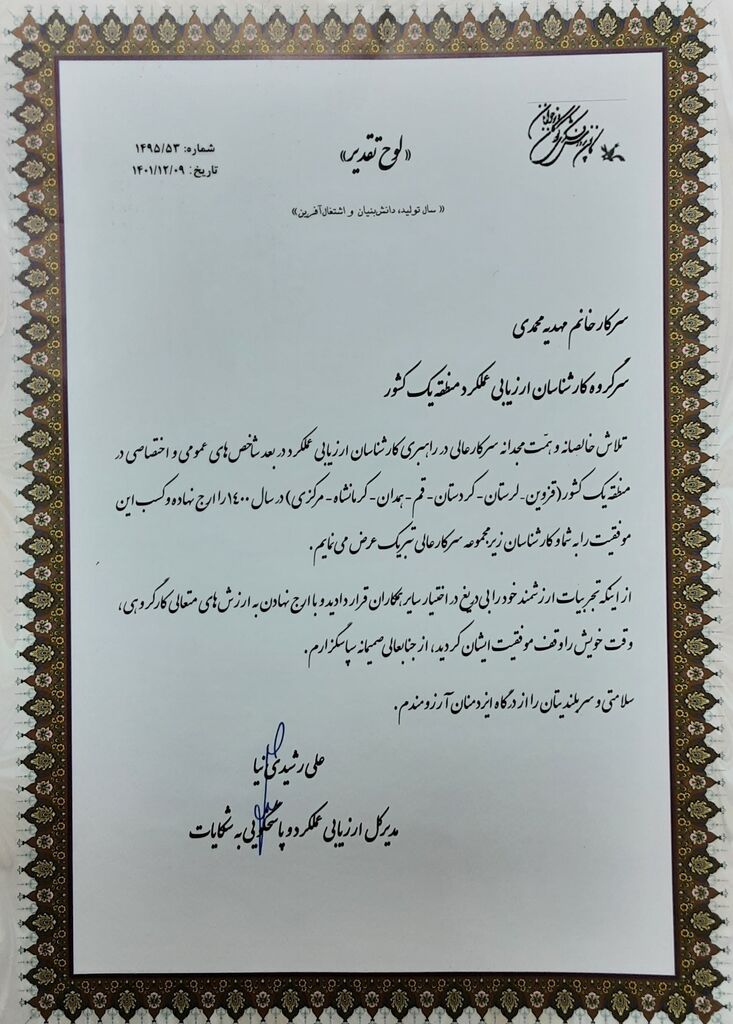 کانون پرورش فکری کودکان و نوجوانان
«لوح تقدیر»
شماره: ۱۴۹۵/۵۳
تاریخ: ۱۴۰۱/۱۲/۰۹
«سال تولید، دانش‌بنیان و اشتغال‌آفرین»
سرکار خانم مهدیه محمدی
سرگروه کارشناسان ارزیابی عملکرد منطقه یک کشور
تلاش خالصانه و همّت مجدانه سرکارعالی در راهبری کارشناسان ارزیابی عملکرد در بعد شاخص های عمومی و اختصاصی در
منطقه یک کشور(قزوین-لرستان-کردستان-قم-همدان-کرمانشاه-مرکزی) در سال ۱۴۰۰ را ارج نهاده و کسب این
موفقیت را به شما و کارشناسان زیرمجموعه سرکارعالی تبریک عرض می نمایم.
از اینکه تجربیات ارزشمند خود را بی دریغ در اختیار سایر همکاران قرار دادید و با ارج نهادن به ارزش های متعالی کار گروهی،
وقت خویش را وقف موفقیت ایشان کردید، از جنابعالی صمیمانه سپاسگزارم.
سلامتی و سربلندیتان را از درگاه ایزد منان آرزومندم.
علی رشیدی نیا
مدیرکل ارزیابی عملکرد و پاسخگویی به شکایات